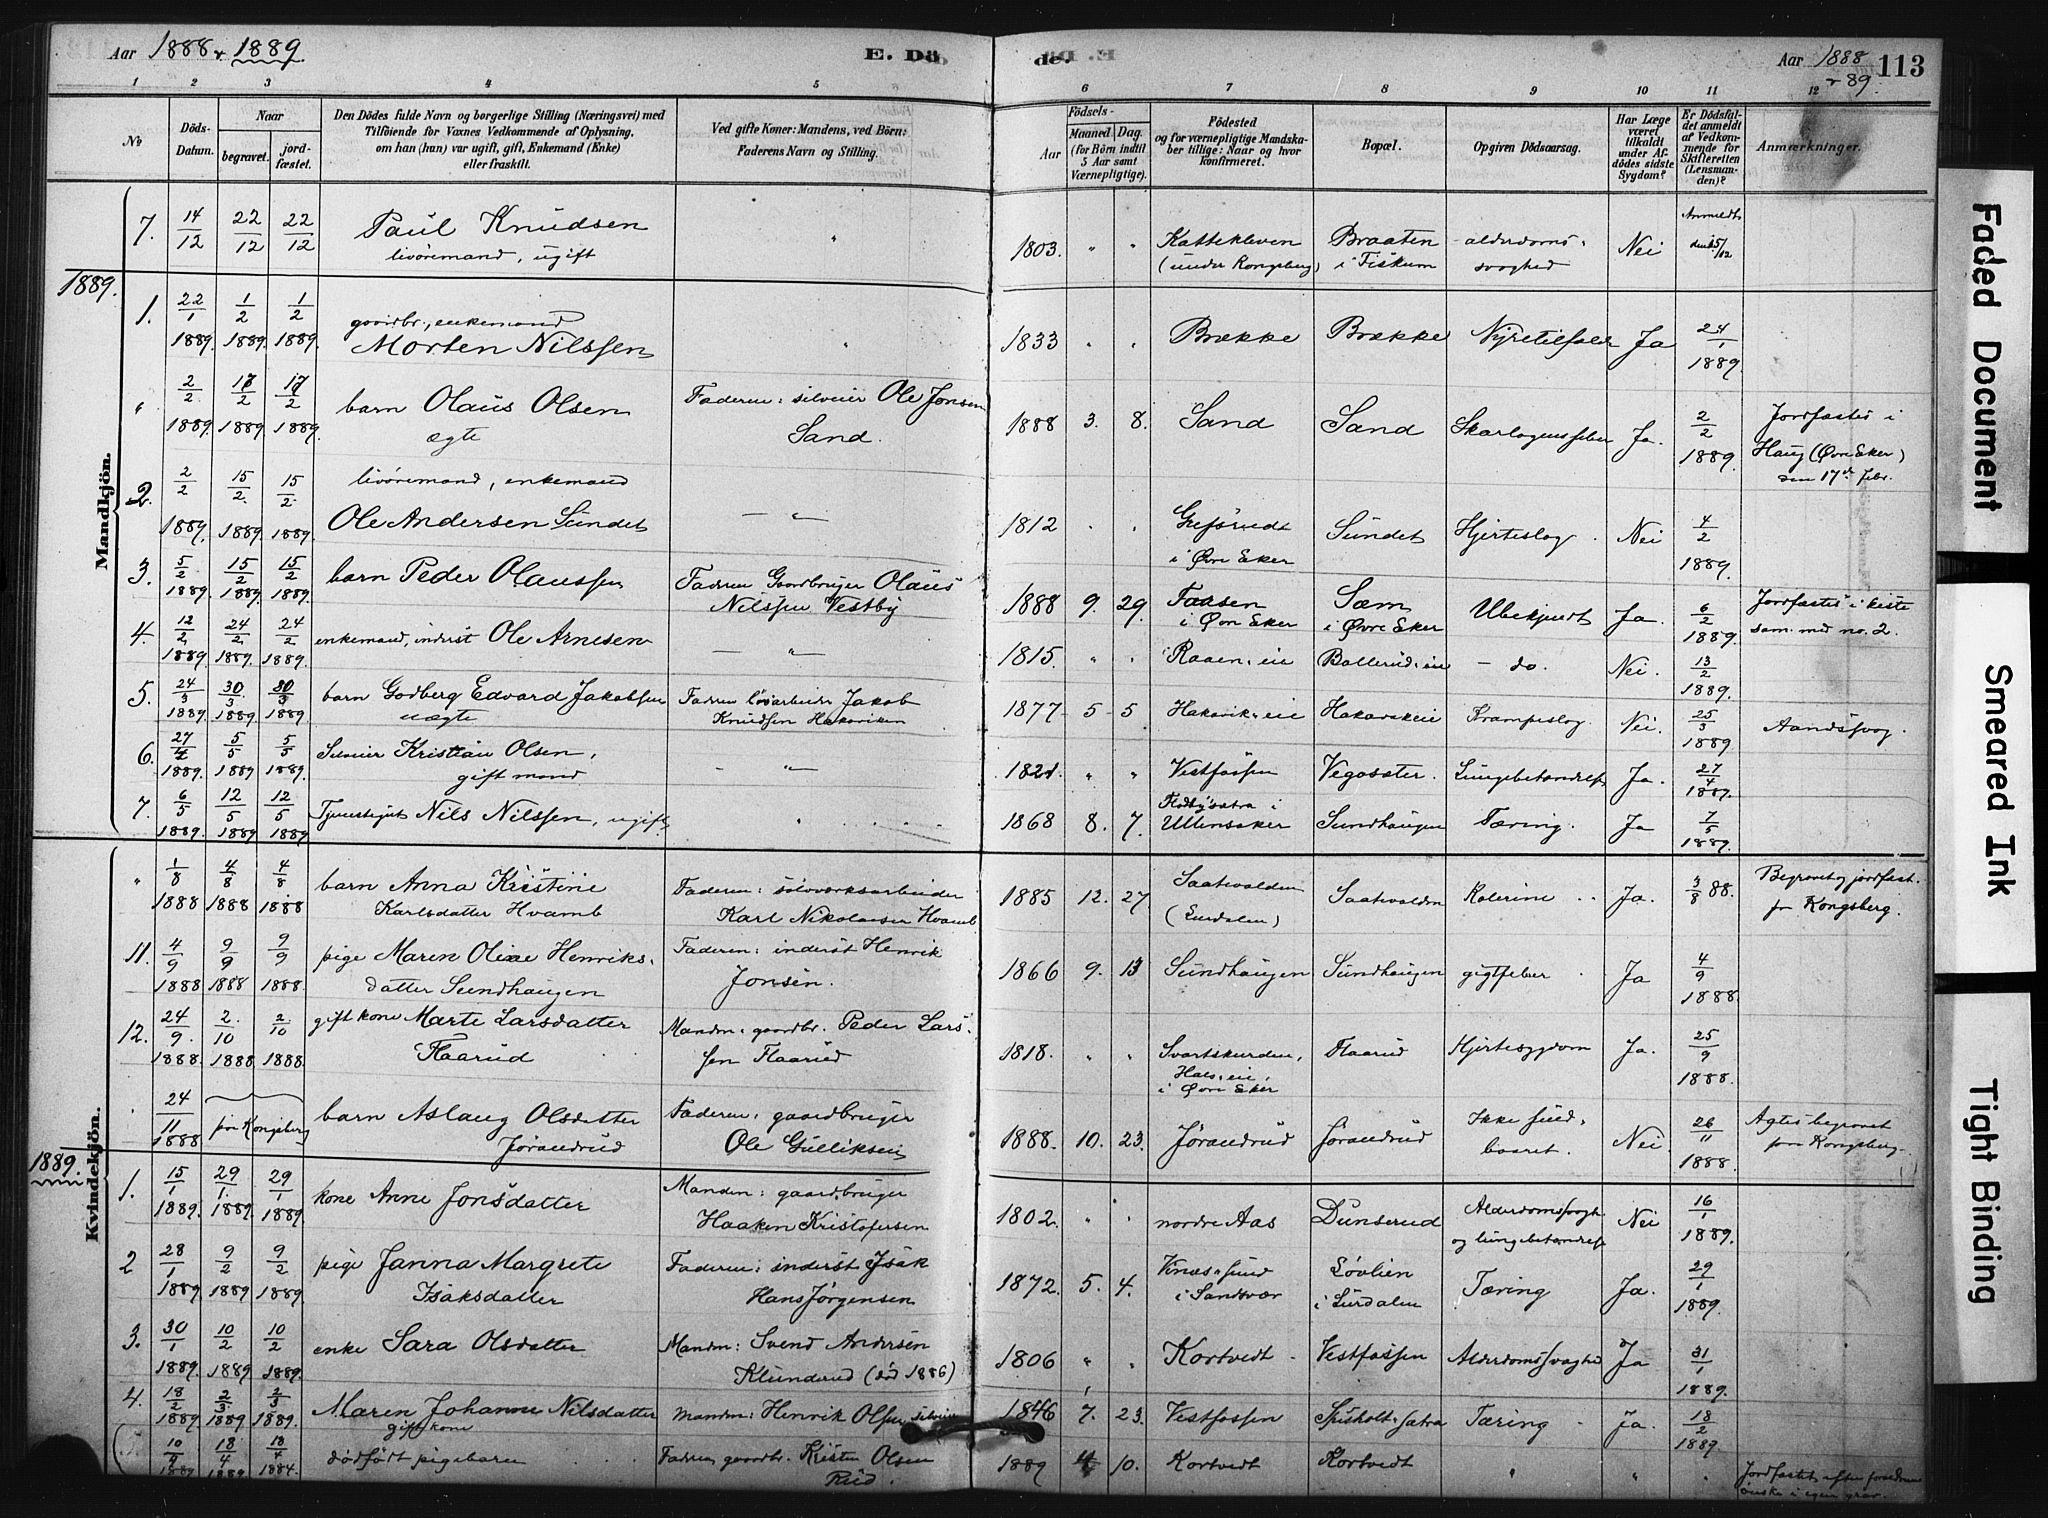 Aar 1888 & 1889
E. Dö
de.
Aar 1888 & 89.
113
1 2 3 4 5 6 7 8 9 10 11 12
№
Döds-Datum.
Naar
begravet.
jord-fæstet.
Den Dödes fulde Navn og borgerlige Stilling (Næringsvei) med
Tilföiende for Vaxnes Vedkommende af Oplysning,
om han (hun) var ugift, gift, Enkemand (Enke)
eller fraskilt.
Ved gifte Koner: Mandens, ved Börn:
Faderens Navn og Stilling.
Födsels-
Aar
Maaned. Dag.
(for Börn indtil
5 Aar samt
Værnepligtige).
Födested
og for værnepligtige Mandska-
ber tillige: Naar og hvor
konfirmeret.
Bopæl.
Opgiven Dödsaarsag.
Har Læge
været
tilkaldt
under Af-
dödes sidste
Sygdom?
Er Dödsfal-
det anmeldt
af Vedkom-
mende for
Skifteretten
(Lensman-
den)?
Anmærkninger.
Mandkjön.
7. 14/12 22/12 22/12 Paul Knudsen " 1803. " " Kattekleven Braaten alderdoms- Nei Anmeldt
livöremand, ugift (under Kongsberg) i Fiskum svaghed den 15/12
1889.
1. 22/1 1/2 1/2 gaardbr., enkemand
1889. 1889. 1889. Morten Nilssen " 1833 " " Brække Brække Nyretilfælde Ja 24/1 1889.
" 2/2 17/2 17/2 barn Olaus Olsen Faderen: selveier Ole Jonsen 1888 3. 8. Sand Sand Skarlagensfeber Ja. 2/2 Jordfæstes i
1889. 1889. 1889. ægte Sand. 1889. Haug (Øvre Eker)
den 17de febr.
2. 2/2 15/2 15/2 livöremand, enkemand
1889. 1889. 1889. Ole Andersen Sundet — " 1812 " " Sundet Hjerteslag. Nei 4/2
i Øvre Eker 1889.
3. 5/2 15/2 15/2 barn Peder Olaussen Faderen Gaardbruger Olaus 1888 9. 29. Faasen Sæm Ubekjendt Ja. 6/2 Jordfæstes i kiste
1889. 1889. 1889. Nilssen Vestby i Øvre Eker i Øvre Eker 1889. sam. med no. 2.
4. 12/2 24/2 24/2 enkemand, inderst Ole Arnesen — " 1815. " " Raaen, eie Bollerud, eie — do. Nei. 13/2
1889. 1889. 1889. 1889.
5. 24/3 30/3 30/3 barn Godberg Edvard Jakobsen Faderen løsarbeider Jakob 1877 5 5 Hakavik, eie Hakavikeie Krampeslag. Nei. 25/3 Aandssvag.
1889. 1889. 1889. uægte Knudsen Hakaviken 1889.
6. 27/4 5/5 5/5 Selveier Kristian Olsen, — " 1821. " " Vestfossen Vegosæter. Lungebetændelse Ja. 27/4
1889. 1889 1889. gift mand 1889.
7. 6/5 12/5 12/5 Tjenestegut Nils Nilssen, ugift " 1868 8. 7. Ullensaker Sundhaugen Tæring. Ja 7/5
1889. 1889 1889 1889.
Kvindekjön.
" 1/8 4/8 4/8 barn Anna Kristine Faderen: sölvverksarbeider 1885 12. 27. Saatevolden Saatevolden Kolerine Ja. 3/8 88. Begravet og jordfæst.
1888 1888 1888 Karlsdatter Hvamb Karl Nikolaisen Hvamb (Surdalen) paa Kongsberg.
11. 4/9 9/9 9/9 pige Maren Oline Henriks- Faderen: inderst Henrik 1866 9. 13 Sundhaugen Sundhaugen gigtfeber Ja 4/9
1888 1888 1888. datter Sundhaugen Jonsen. 1888.
12. 24/9 2/10 2/10 gift kone Marte Larsdatter Manden: gaardbr. Peder Lars- 1818. " " Svartskurden, Flaarud Hjertesygdom Ja. 25/9
1888. 1888 1888. Flaarud sen Flaarud Hals, eie, i Øvre Eker 1888.
" 24/11 paa Kongsberg barn Aslaug Olsdatter Faderen: gaardbruger 1888. 10. 23. Jørandrud Jørandrud Ikke sund- Nei. 26/11 Agtes begravet
1888 Jørandrud Ole Gulliksen baaret. 1888. paa Kongsberg.
1889.
1. 15/1 29/1 29/1 kone Anne Jonsdatter Manden: gaardbruger 1802. " " nordre Aas Dunserud Alderdomssvagh. Nei 16/1
1889. 1889. 1889. Haaken Kristofersen og lungebetændelse 1889.
2 28/1 9/2 9/2 pige Janna Margrete Faderen: inderst Isak 1872. 5. 4. Løvlien Tæring Ja. 29/1
1889 1889 1889. Isaksdatter Hans Jørgensen i Sandsvær i Surdalen 1889.
3. 30/1 10/2 10/2 enke Sara Olsdatter Manden: Svend Andersen 1806 " " Kortvedt Vestfossen Alderdomssvaghed Ja 31/1
1889. 1889 1889. Klunderud (død 1886) 1889.
4. 18/2 2/3 2/3 Maren Johanne Nilsdatter Manden: Henrik Olsen selveier 1846 7. 23. Vestfossen Spisholt, sætra Tæring Ja. 18/2
1889 1889 1889. gift kone 1889.
10/4 18/4 18/4 dødfødt pigebarn Faderen, gaardbr. Kristen Olsen 1889 4 10. Kortvedt Kortvedt " " " Jordfæstet efter forældrenes
1889 1889 1884. Rud. ønske i egen grav.
Faded Document
Smeared Ink
Tight Binding